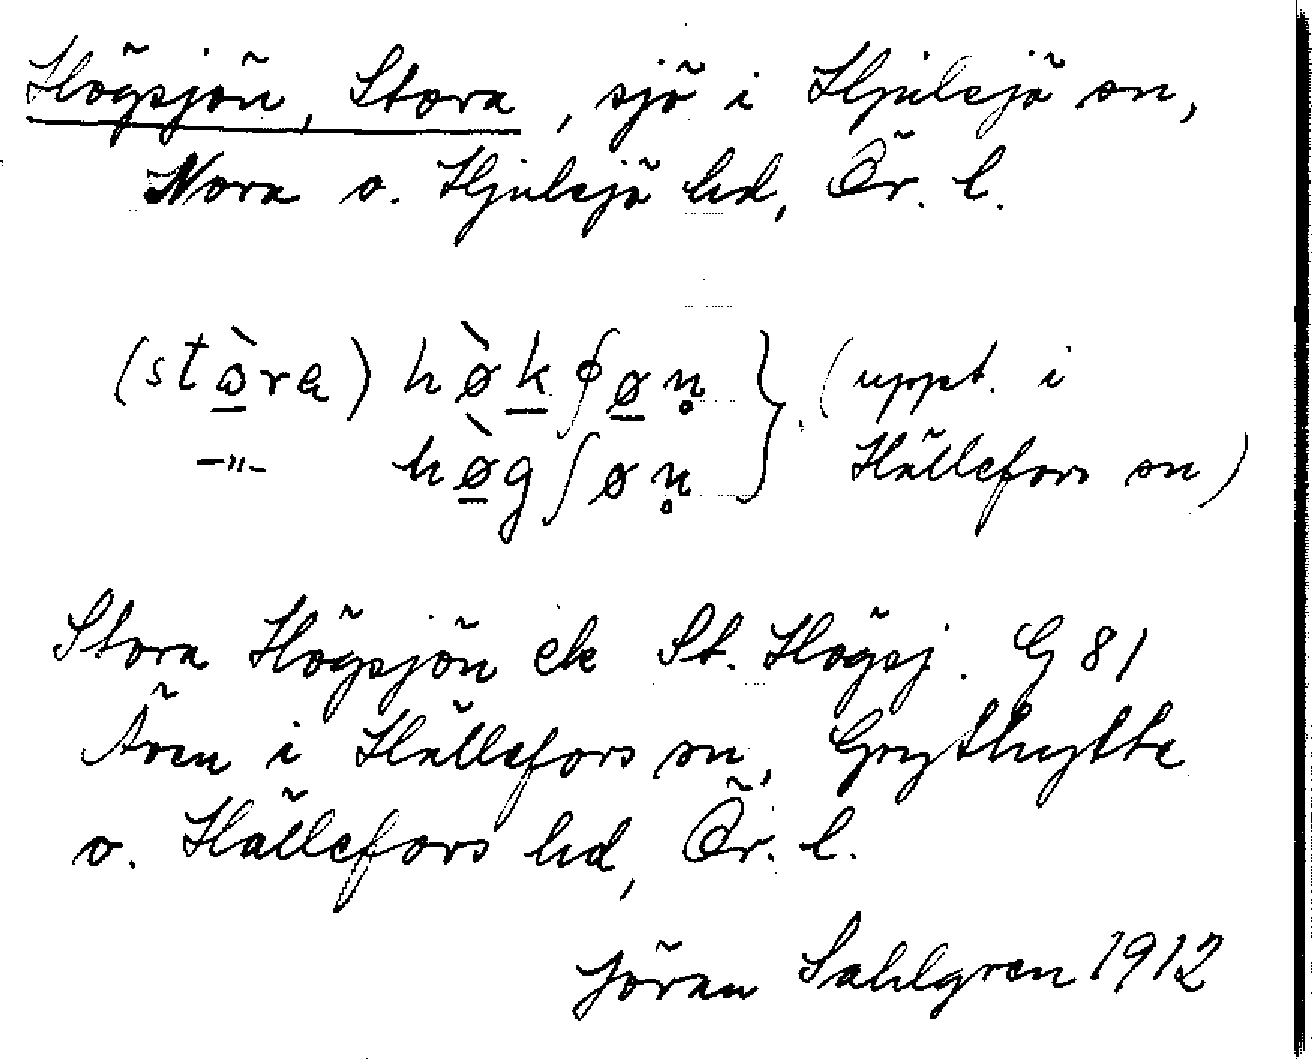 Högsjön, Stora, sjö i Hjulsjö sn,
Nora o. Hjulsjö hd, Ör. l.
(stòra) hø̀kʃøn̥ } (uppt. i
–"– hø̀gʃøn̥ Hällefors sn)
Stora Högsjön ek St. Högsj. G 81
Även i Hällefors sn, Grythytte
o. Hällefors hd, Ör. l.
Jöran Sahlgren 1912